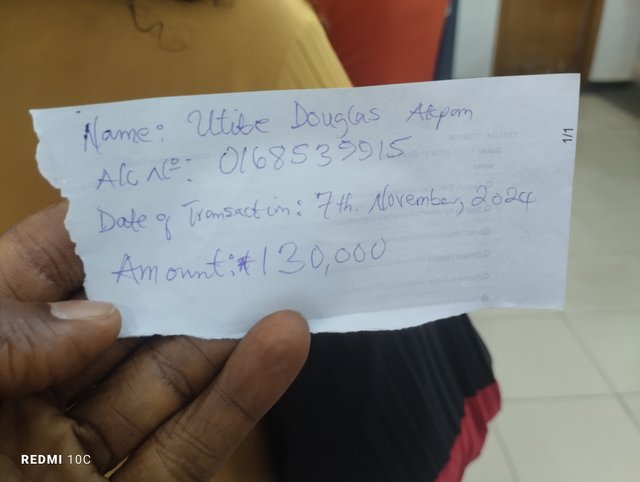 Name: Utibe Douglas Akpan
A/C No: 0168535915
Date of Transaction: 7th November, 2024
Amount: ₦130,000
1/1
REDMI 10C